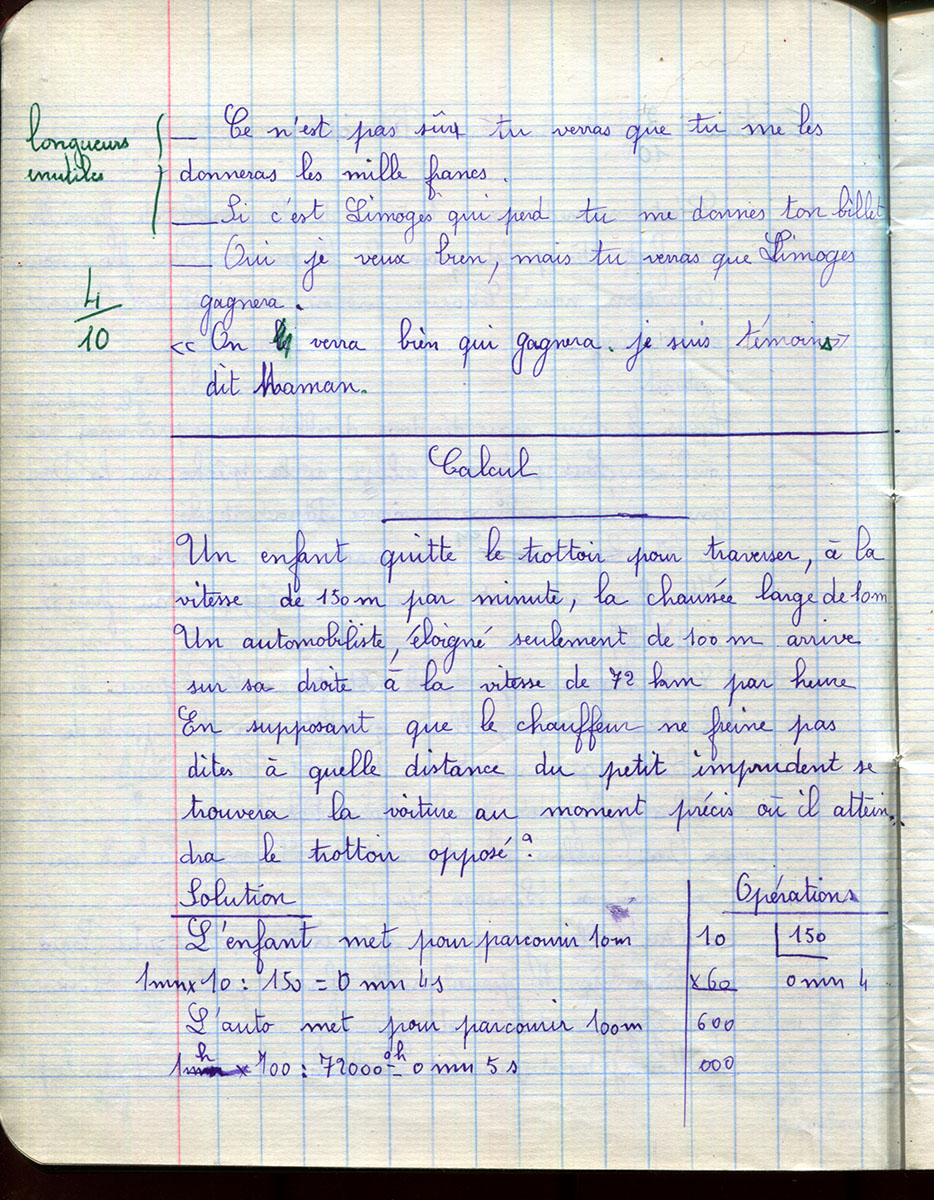 longueurs
inutiles
— Ce n'est pas sûr tu verras que tu me les
donneras les mille francs.
— Si c'est Limoges qui perd tu me donnes ton billet
— Oui je veux bien, mais tu verras que Limoges
gagnera.
4
10
<< On verra bien qui gagnera. je suis témoins >>
dit Maman.
Calcul
Un enfant quitte le trottoir pour traverser, à la
vitesse de 150 m par minute, la chaussée large de 10m
Un automobiliste, éloigné seulement de 100 m arrive
sur sa droite à la vitesse de 72 km par heure
En supposant que le chauffeur ne freine pas
dites à quelle distance du petit imprudent se
trouvera la voiture au moment précis où il attein
dra le trottoir opposé?
Solution
L'enfant met pour parcourir 10m
1mn x 10 : 150 = 0 mn 4s
L'auto met pour parcourir 100m
1h x 100 : 72000 = 0h 0 mn 5 s
Opérations
10 150
x60 0 mn 4
600
000